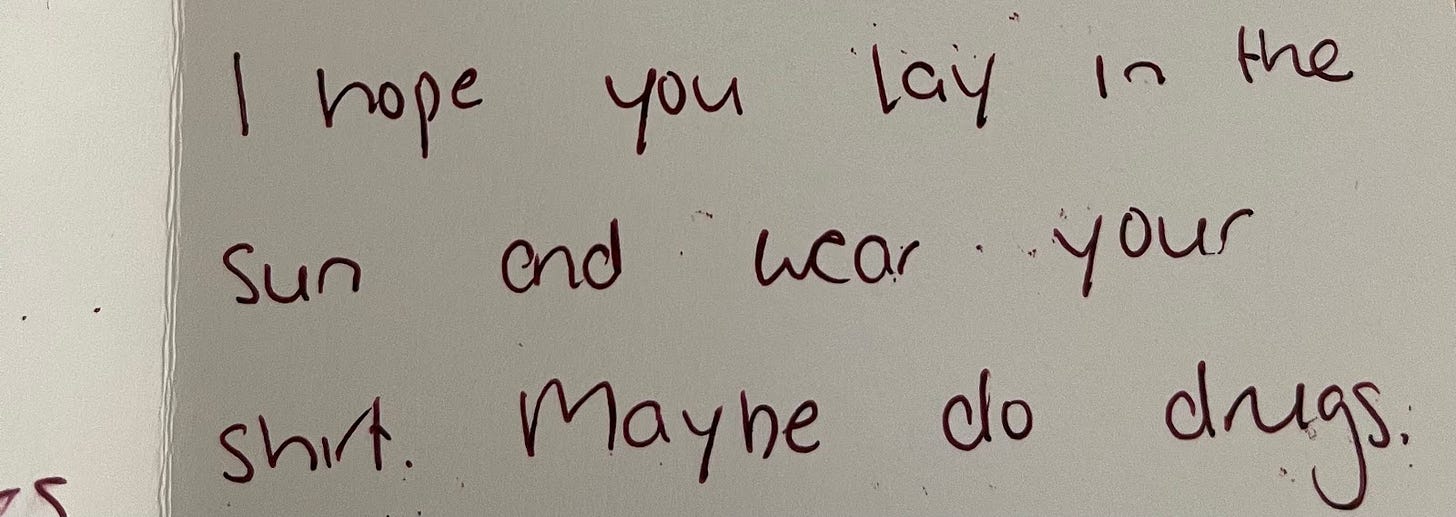 I hope you lay in the
sun and wear your
shirt. Maybe do drugs.